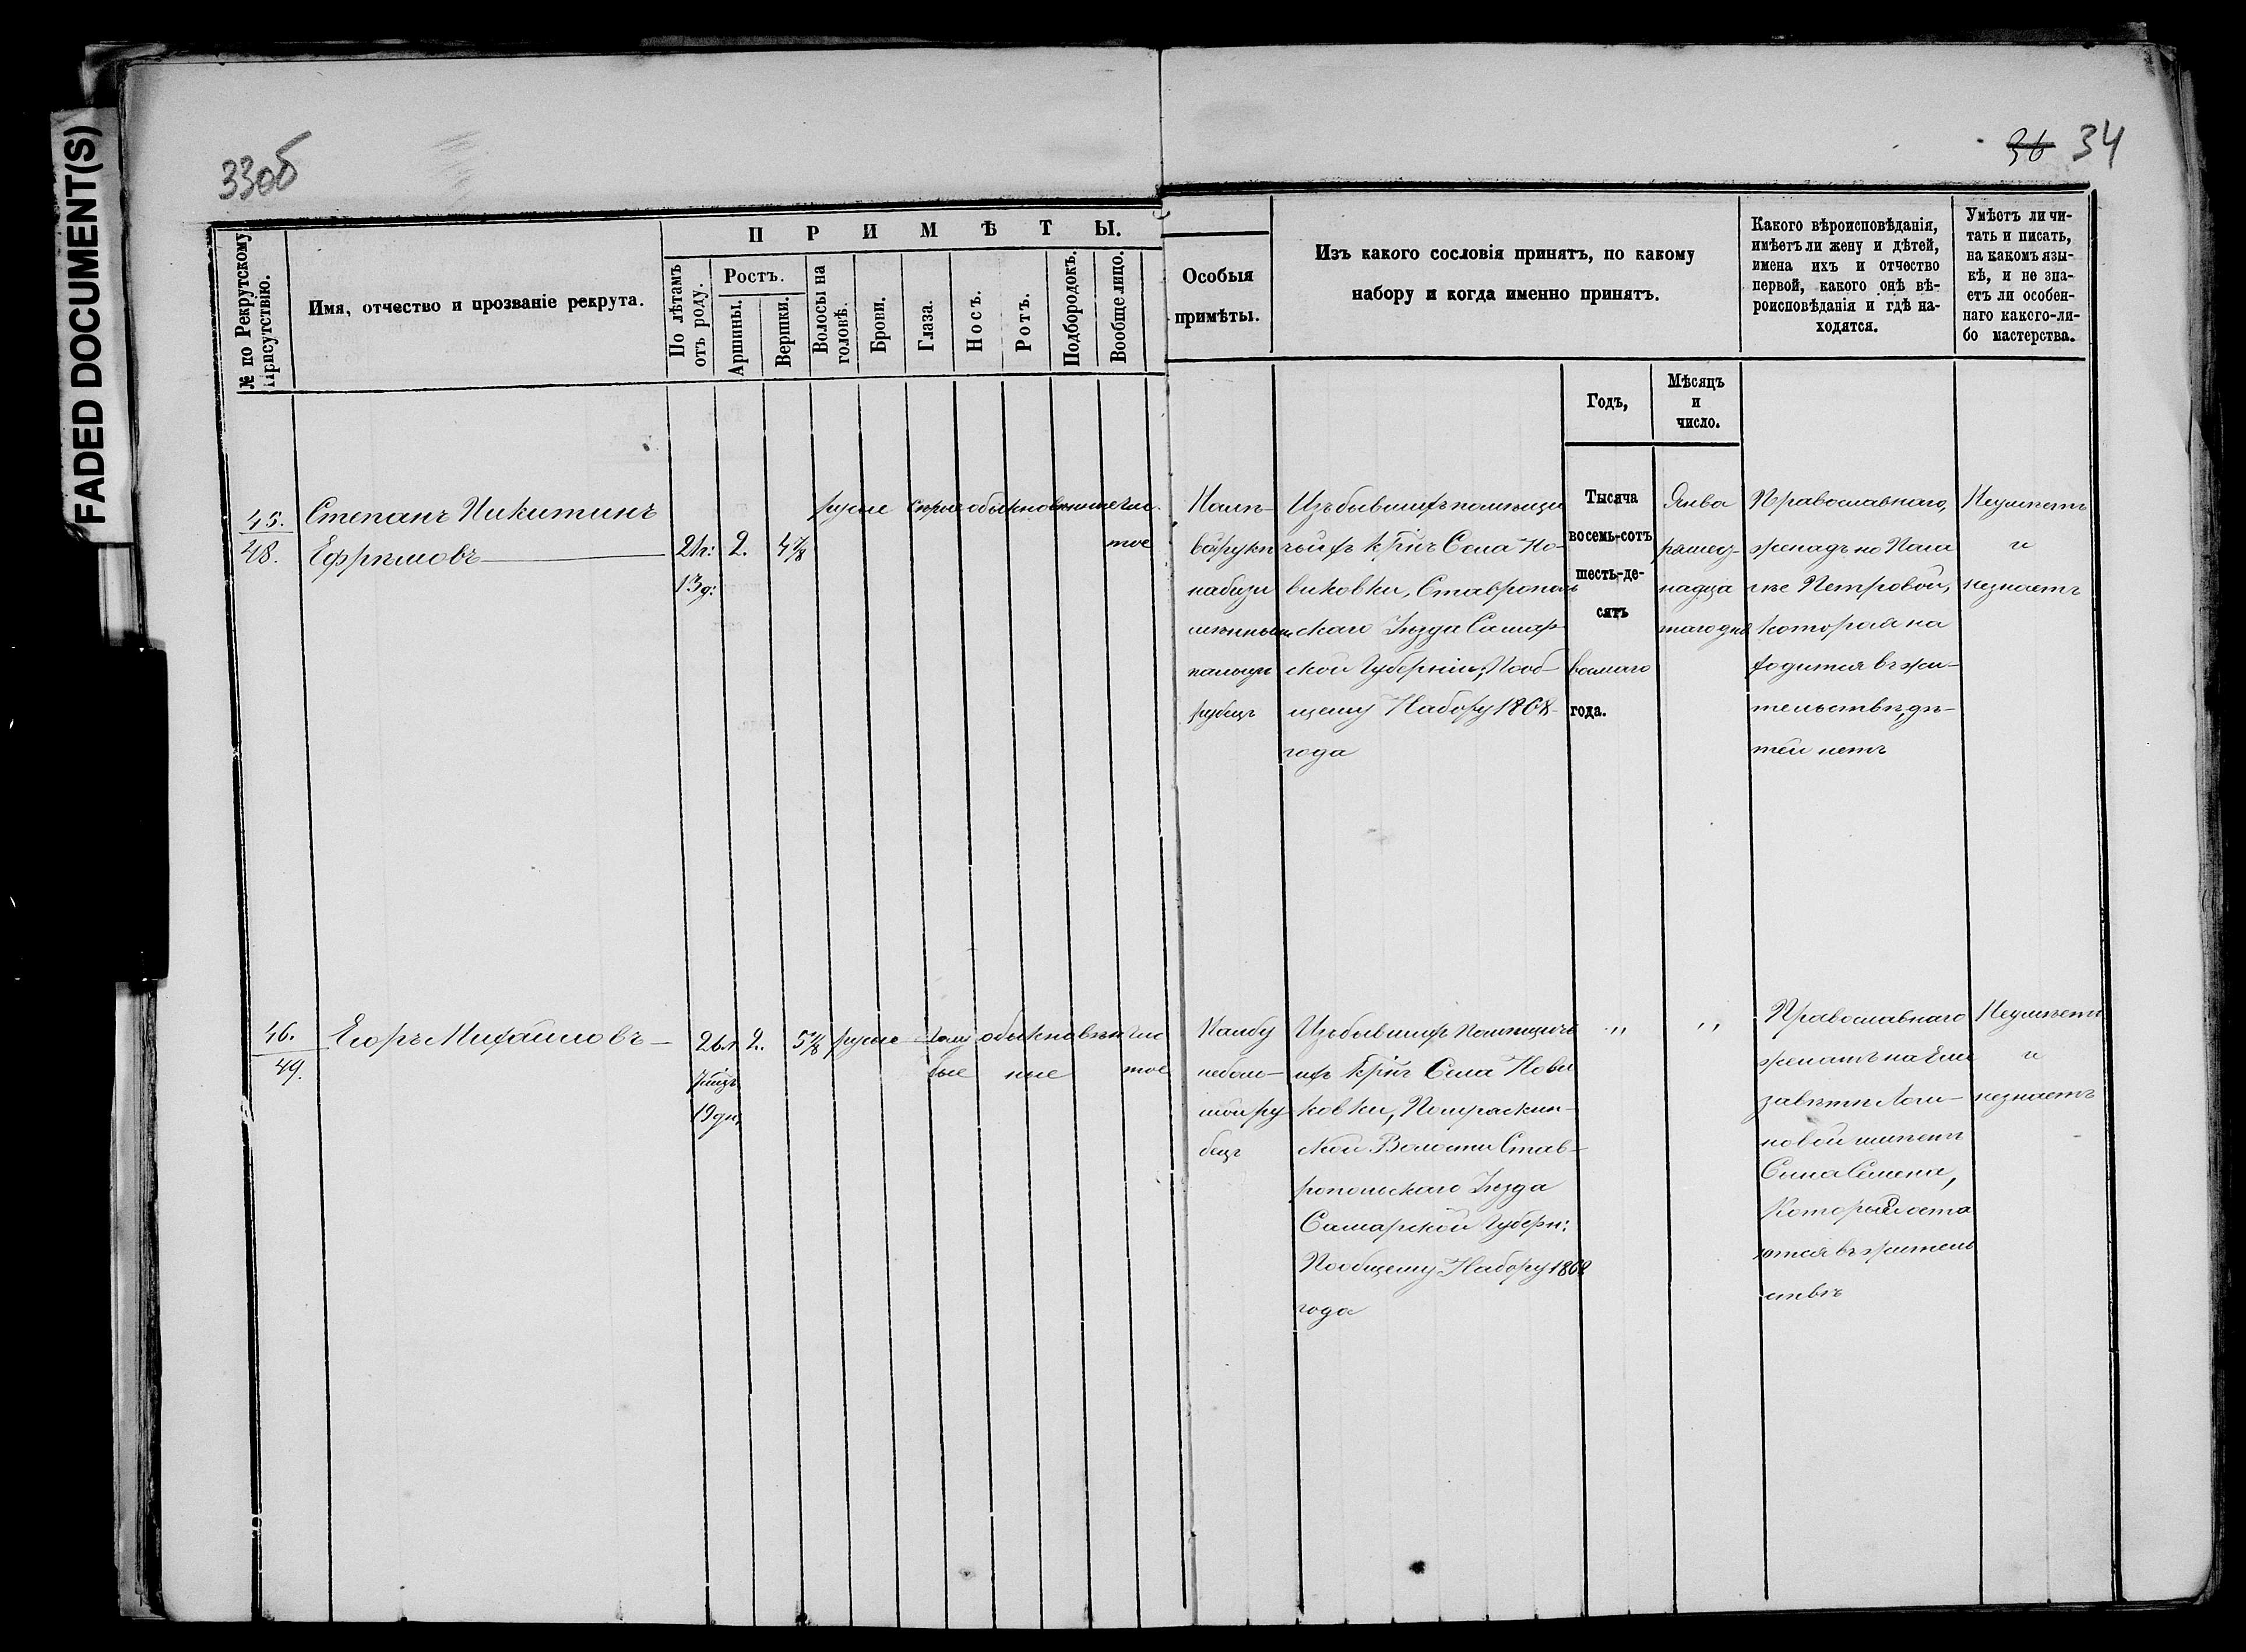 FADED DOCUMENT(S)
33об
36 34
№ по Рекрутскому Присутствію.
Имя, отчество и прозваніе рекрута.
ПРИМѢТЫ.
По лѣтамъ отъ роду.
Ростъ.
Аршины.
Вершки.
Волосы на головѣ.
Брови.
Глаза.
Носъ.
Ротъ.
Подбородокъ.
Вообще лицо.
Особыя
примѣты.
Изъ какого сословія принятъ, по какому
набору и когда именно принятъ.
Годъ,
Мѣсяцъ
и
число.
Какого вѣроисповѣданія,
имѣетъ ли жену и дѣтей,
имена ихъ и отчество
первой, какого онѣ вѣ-
роисповѣданія и гдѣ на-
ходятся.
Умѣетъ ли чи-
тать и писать,
на какомъ язы-
кѣ, и не зна-
етъ ли особен-
наго какого-ли-
бо мастерства.
45.
48.
Степанъ Никитинъ
Ефремовъ
21г:
13д:
2.
4 7/8
русые серые обыкновенные чис
тое
На лѣ-
вой руки
на безы
мянномъ
пальцы
рубецъ
Изъ бывшихъ помѣщи
чьихъ крн҃ъ Села Но-
виковки, Ставрополь
скаго Уѣзда Самар-
ской Губерніи, По об-
щему Набору 1868
года
Тысяча
восемь-сотъ
шесть-де-
сятъ
восьмаго
года.
Янва
ря шест-
надца
таго дня
Православнаго,
женадъ на Пела
гѣе Петровой,
которая на
ходится въ жи-
тельствѣ, дѣ-
тей нетъ
Неумѣетъ
и
незнаетъ
46.
49.
Егоръ Михайловъ
26л
7міцъ
19дн,
2.
5 7/8
русые голу обыкновен чис
бые ные тое
На лбу
неболь-
шой ру
бецъ
Изъ бывшихъ Помѣщичь
ихъ Крн҃ъ Села Нови
ковки,
ской Волости Став-
ропольскаго Уѣзда
Самарской Губерн:
По общему Набору 1868
года
,,
,,
Православнаго
женатъ на Ели
заветѣ Логи-
новой имѣетъ
Сина Семена,
Которые оста
ются въ житель
ствѣ
Неумѣетъ
и
незнаетъ